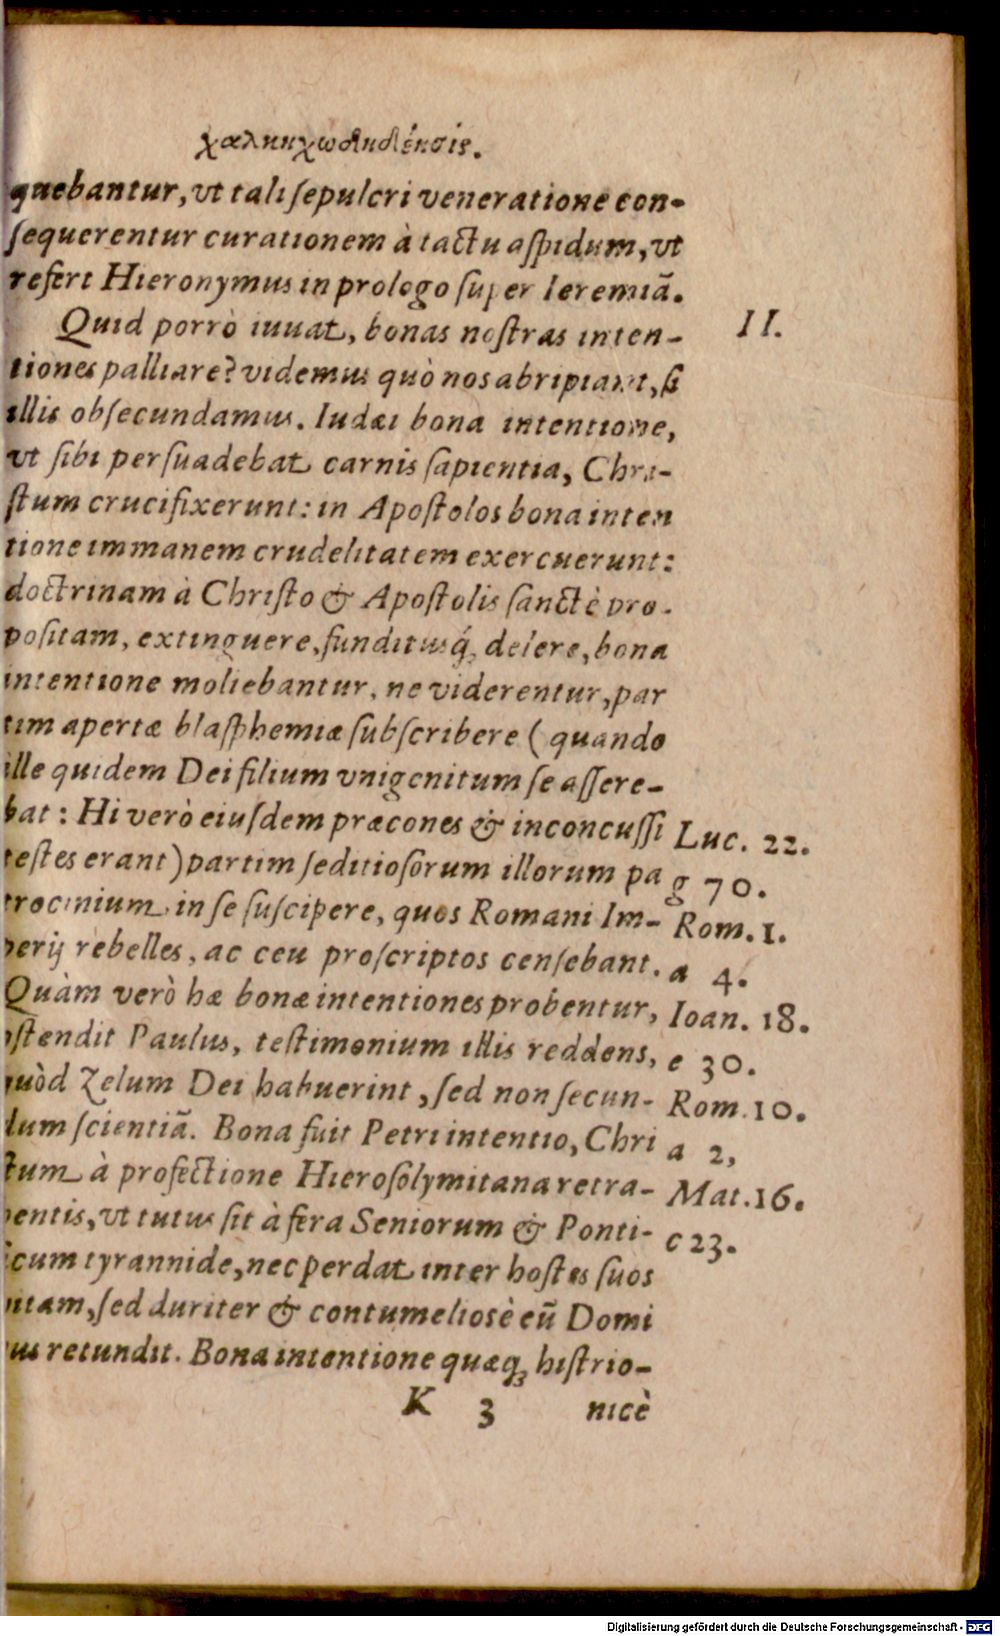 χαλκηχωδηδένσις.
quebantur, vt tali ſepulcri veneratione con-
ſequerentur curationem à tactu aſpidum, vt
refert Hieronymus in prologo ſuper Ieremiã.
Quid porrò iuuat, bonas noſtras inten-
II.
tiones palliare? videmus quò nos abripiant, ſi
illis obſecundamus. Iudæi bona intentione,
vt ſibi perſuadebat carnis ſapientia, Chri-
ſtum crucifixerunt: in Apoſtolos bona inten
tione immanem crudelitatem exercuerunt:
doctrinam à Chriſto & Apoſtolis ſanctè pro-
poſitam, extinguere, funditusq́; delere, bona
intentione moliebantur, ne viderentur, par
tim apertæ blaſphemiæ ſubſcribere ( quando
ille quidem Dei filium vnigenitum ſe aſſere-
bat : Hi verò eiuſdem præcones & inconcuſſi
Luc. 22.
teſtes erant) partim ſeditioſorum illorum pa
g 70.
trocinium in ſe ſuſcipere, quos Romani Im-
Rom. 1.
perij rebelles, ac ceu proſcriptos cenſebant.
a 4.
Quàm verò hæ bonæ intentiones probentur,
Ioan. 18.
oſtendit Paulus, teſtimonium illis reddens,
e 30.
quòd Zelum Dei habuerint, ſed non ſecun-
Rom. 10.
dum ſcientiã. Bona fuit Petri intentio, Chri
a 2,
ſtum à profectione Hieroſolymitana retra-
Mat. 16.
hentis, vt tutus ſit à fera Seniorum & Ponti-
c 23.
ficum tyrannide, nec perdat inter hoſtes ſuos
vitam, ſed duriter & contumelioſè eũ Domi
nus retundit. Bona intentione quæq; hiſtrio-
K 3
nicè
Digitalisierung gefördert durch die Deutsche Forschungsgemeinschaft - DFG